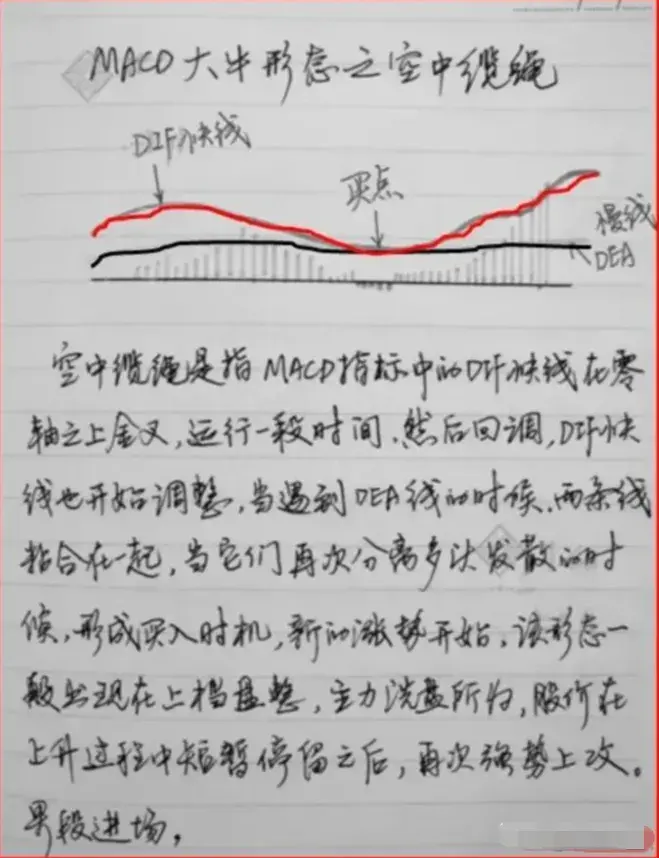 MACD大牛形态之空中缆绳
DIF快线
买点
慢线
DEA
空中缆绳是指MACD指标中的DIF快线在零
轴之上金叉,运行一段时间,然后回调,DIF快
线也开始调整,当遇到DEA线的时候,两条线
粘合在一起,当它们再次分离多头发散的时
候,形成买入时机,新的涨势开始,该形态一
般出现在上档盘整,主力洗盘所为,股价在
上升过程中短暂停留之后,再次强势上攻。
果断进场,